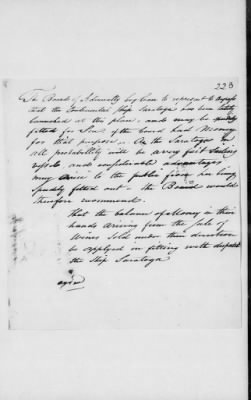 223
The Board of Admiralty beg leave to represent to Congress
that the Continental Ship Saratoga has been lately
launched at this place, and may be speedily
fitted for Sea if the board had Money
for that purpose. As the Saratoga in
all probability will be a very fast Sailing
and considerable advantages
may arise to the public from her being
speedily fitted out - the Board would
therefore recommend.
That the balance of Money in their
hands arising from the Sale of
Wines sold under their direction
be applied in fitting with dispatch
the Ship Saratoga